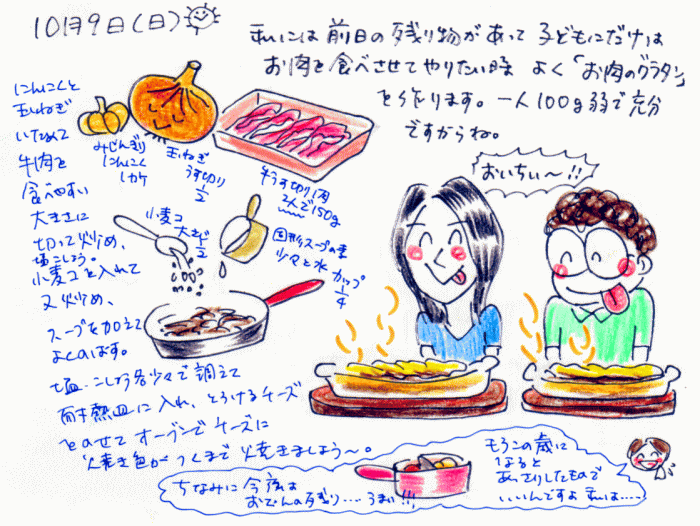 10月9日(日)
私には前日の残り物があって子どもにだけは
お肉を食べさせてやりたい時 よく「お肉のグラタン」
を作ります。一人100g弱で充分
ですからね。
にんにくと
玉ねぎ
いためて
牛肉を
食べやすい
大きさに
切って炒め、
塩こしょう。
小麦コを入れて
又炒め、
スープを加えて
よくのばす。
塩こしょう各少々で調えて
耐熱皿に入れ、とろけるチーズ
とのせてオーブンでチーズに
焼き色がつくまで焼きましょう〜。
みじんぎり
にんにく
1カケ
玉ねぎ
うす切り
1/2
牛うす切り肉
2人で150g
小麦コ
大さじ
2
固形スープの素
少々と水 カップ
1/4
おいちぃ〜!!
ちなみに今夜は
おでんの残り‥‥うまい!!!
もうこの歳に
なると
あっさりしたもので
いいんですよ 私は‥‥